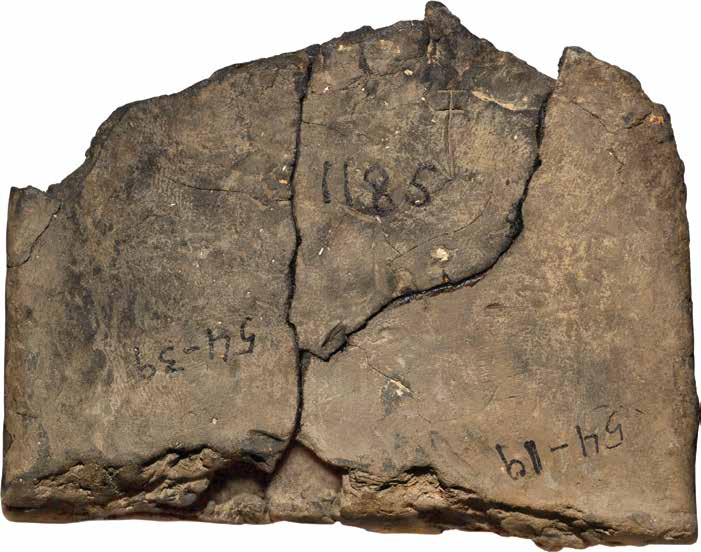 1185
54-39
54-19